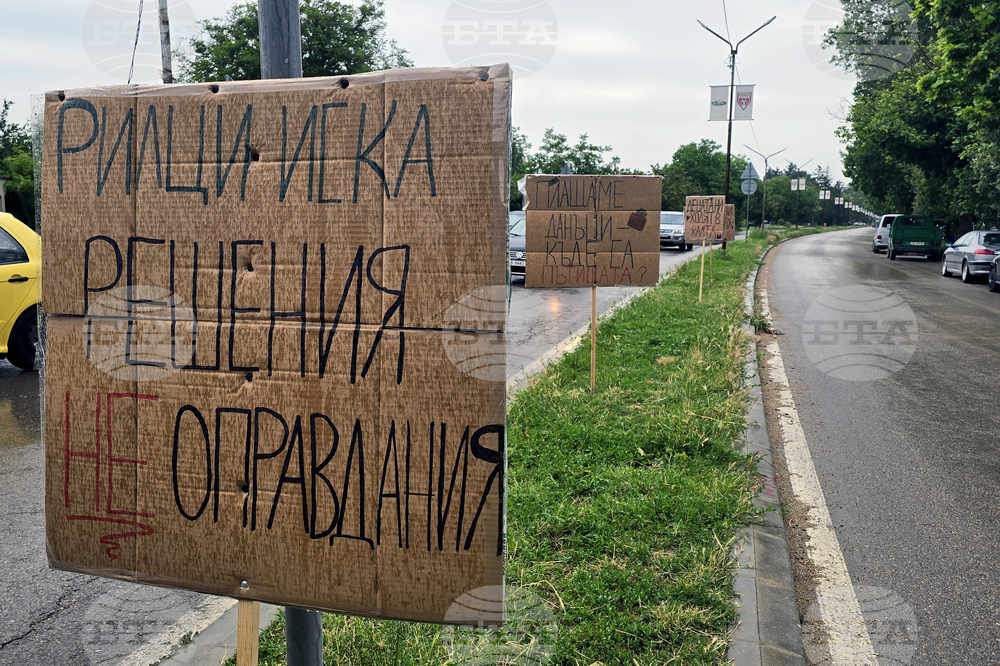 РИЛЦИ ИСКА
РЕШЕНИЯ
НЕ ОПРАВДАНИЯ
ПЛАЩАМЕ
ДАНЪЦИ –
КЪДЕ СА
ПЪТИЩАТА?
БТА
БТА
БТА
БТА
БТА
БТА